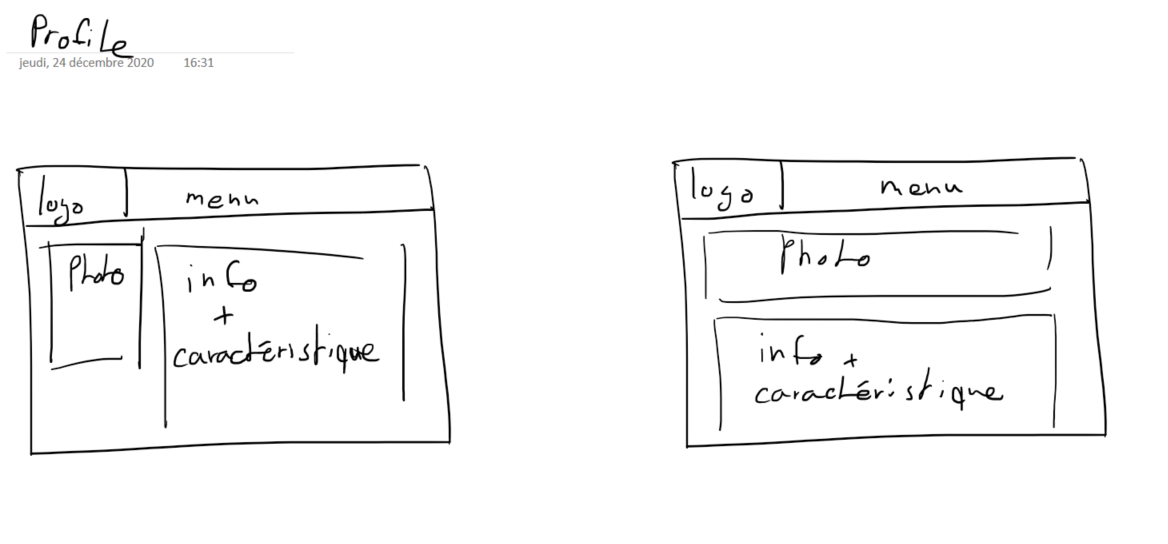 Profile
jeudi, 24 décembre 2020 16:31
logo menu
Photo
info
+
caractéristique
logo menu
Photo
info +
caractéristique